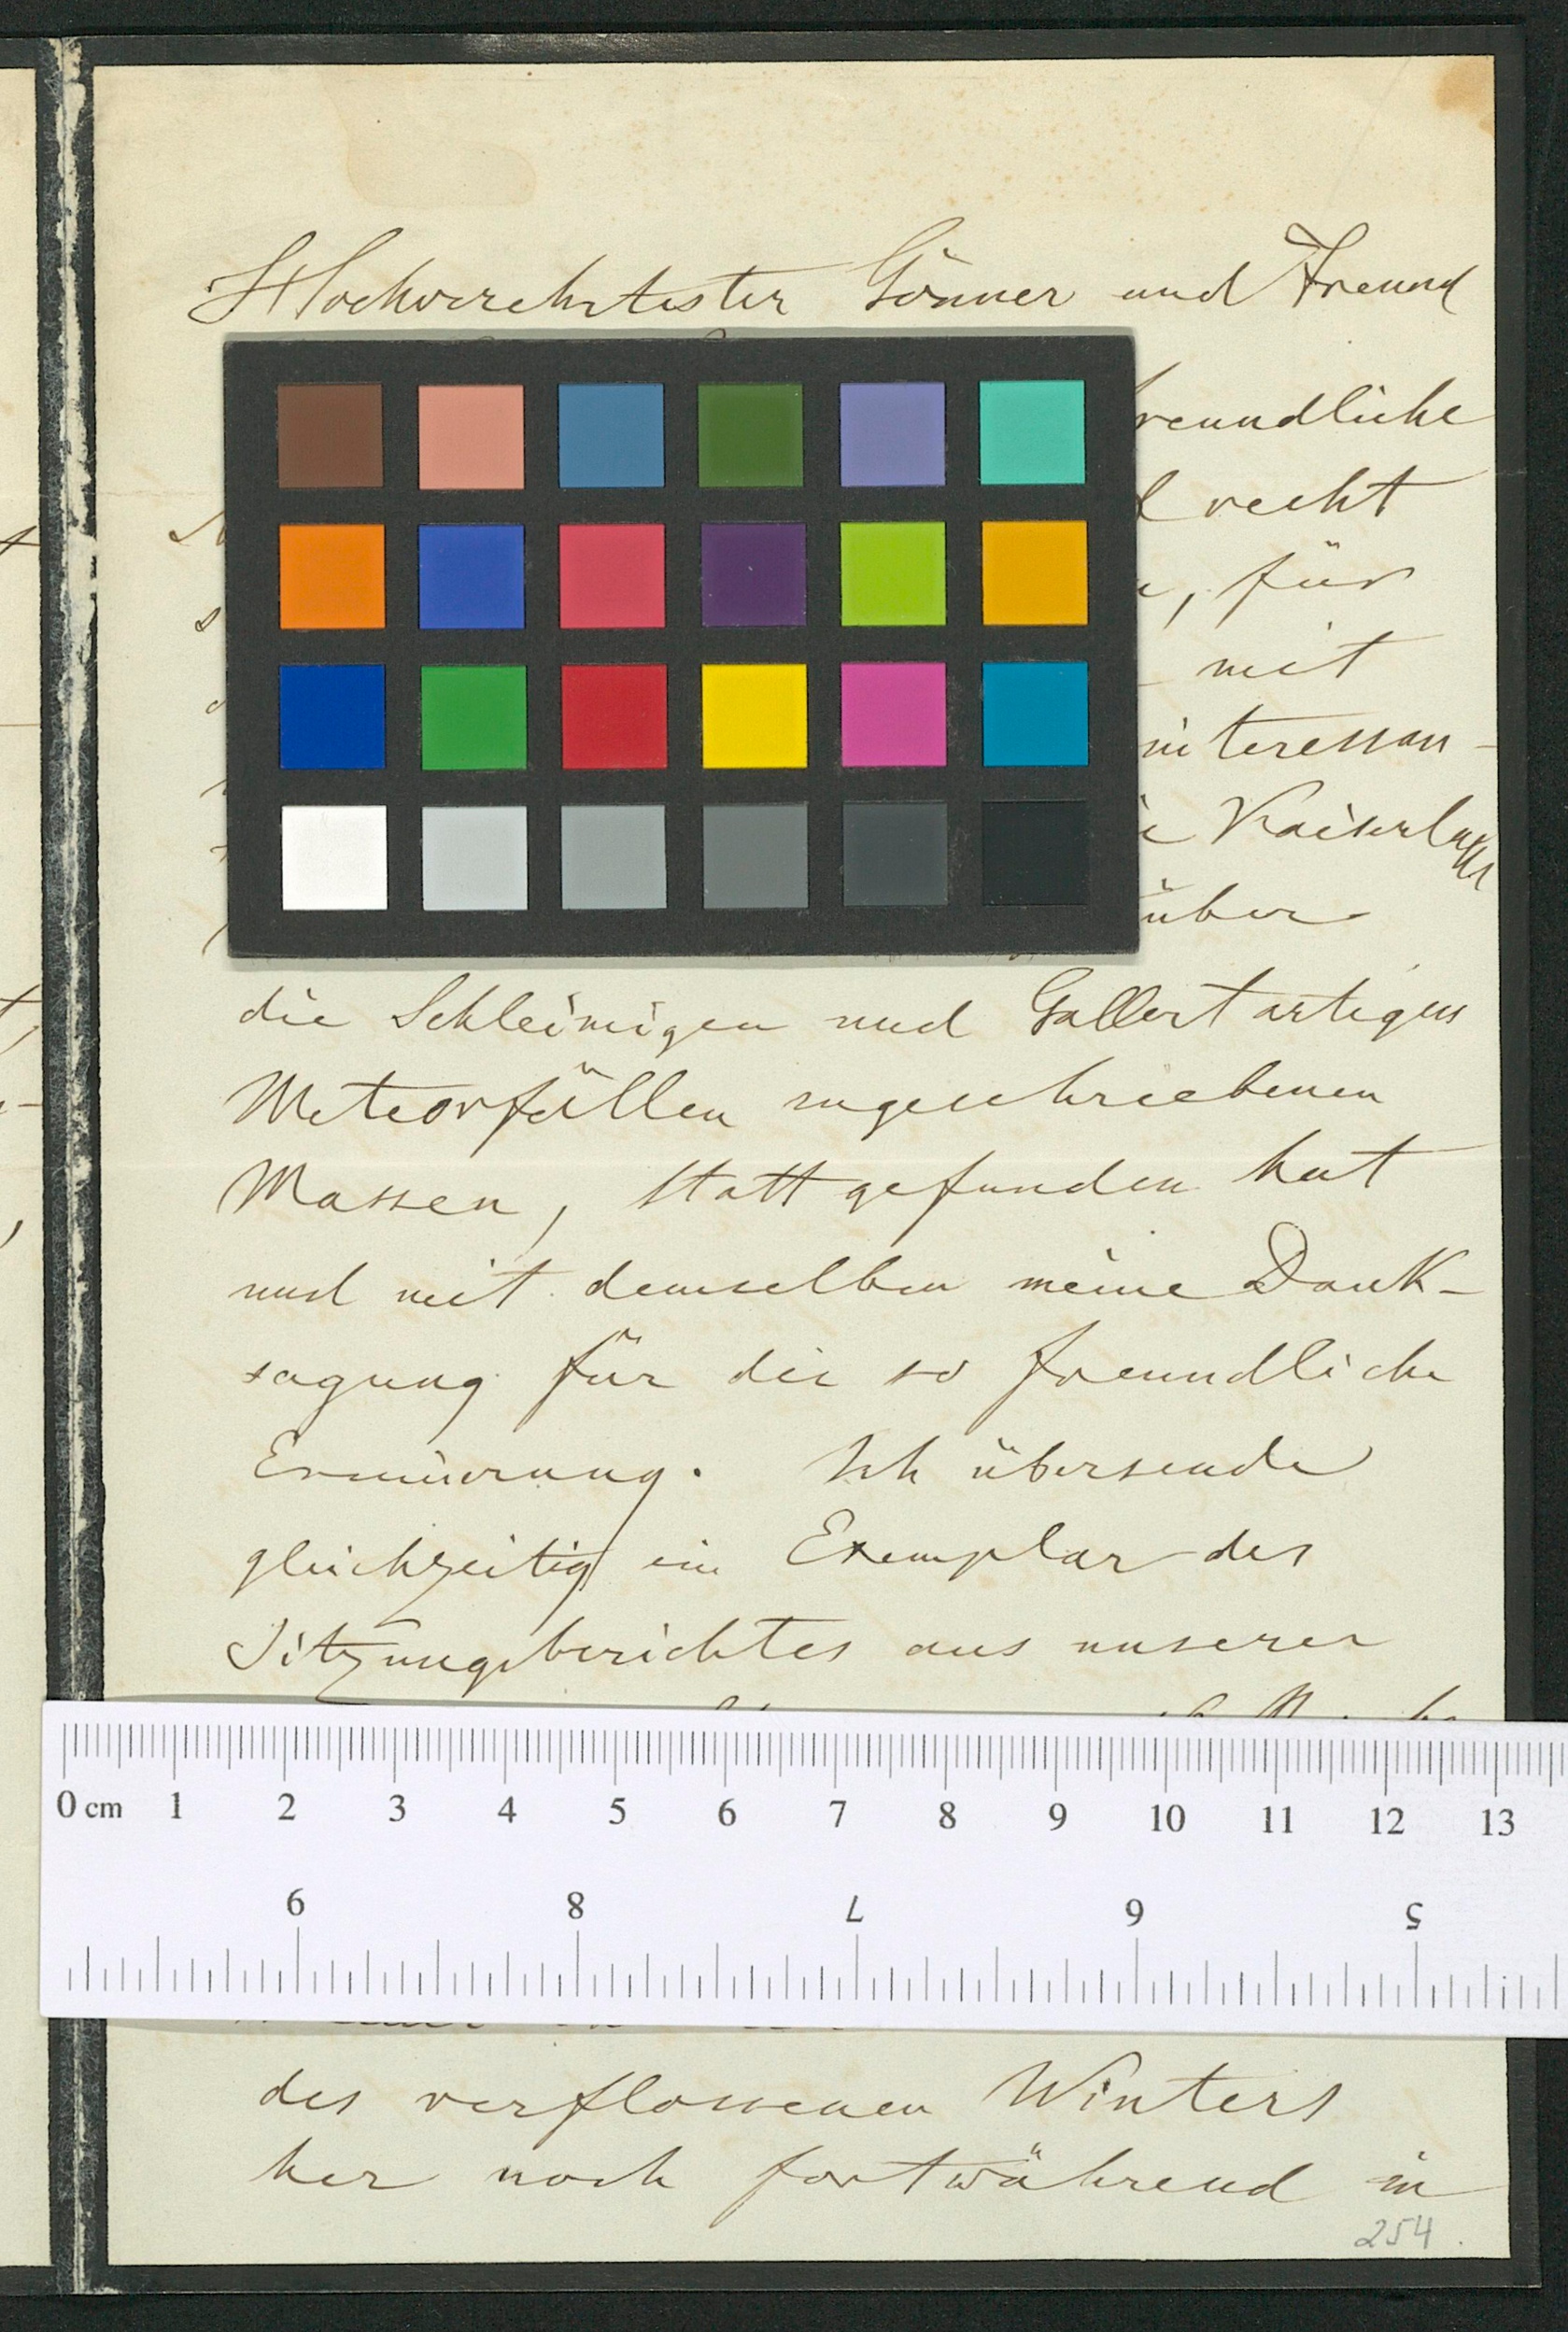 Hochverehrtester Gönner und Freund
freundliche
recht
, für
mit
interessan-
Kaiserl
über
die Schleimigen und Gallertartigen
Meteorfällen zugeschriebenen
Massen, stattgefunden hat
und mit demselben meine Dank-
sagung für die so freundliche
Erinnerung. Ich übersende
gleichzeitig ein Exemplar des
Sitzungsberichtes aus unserer
0 cm 1 2 3 4 5 6 7 8 9 10 11 12 13
9 8 7 6 5
des verflossenen Winters
her noch fortwährend in
254.